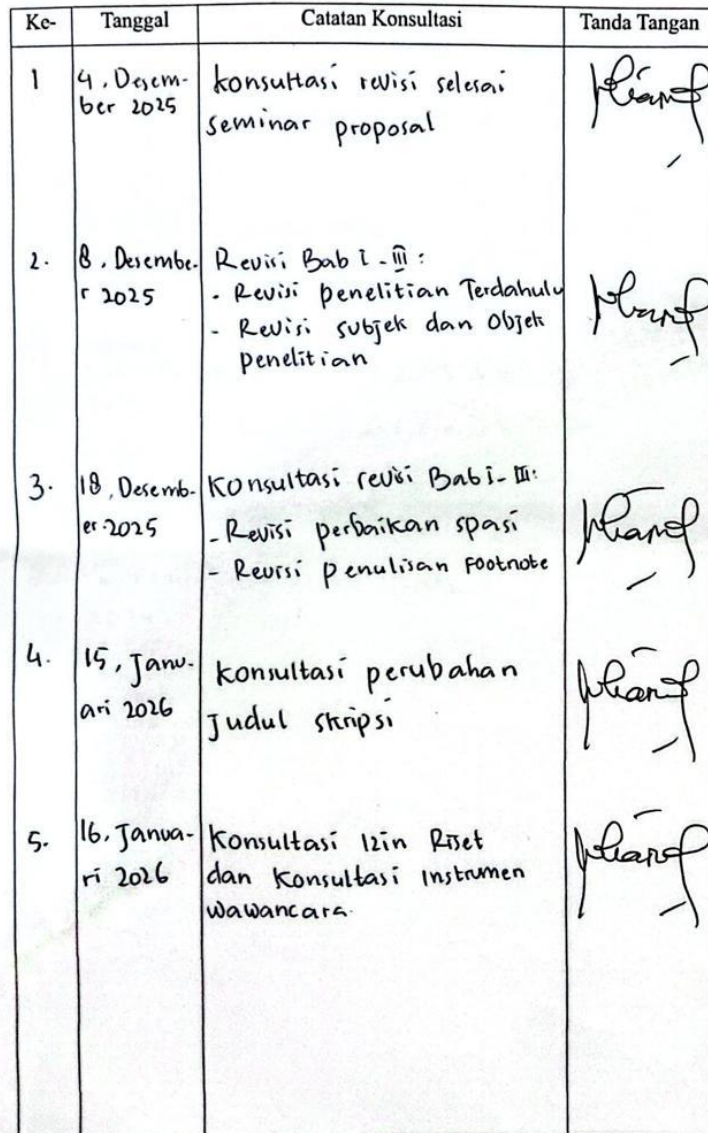 Ke- Tanggal Catatan Konsultasi Tanda Tangan
1 4, Desem- konsultasi revisi selesai
ber 2025 seminar proposal
2. 8, Desembe- Revisi Bab I-III:
r 2025 - Revisi penelitian Terdahulu
- Revisi subjek dan Objek
penelitian
3. 18, Desemb- Konsultasi revisi Bab I-III:
er 2025 - Revisi perbaikan spasi
- Revisi penulisan Footnote
4. 15, Janu- konsultasi perubahan
ari 2026 Judul skripsi
5. 16, Janua- Konsultasi Izin Riset
ri 2026 dan Konsultasi Instrumen
wawancara.